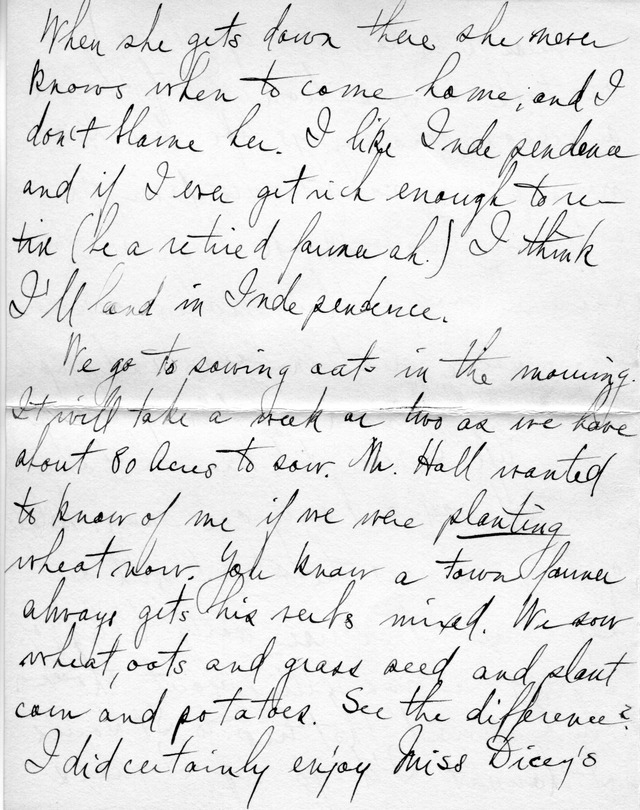 When she gets down there she never
knows when to come home, and I
don't blame her. I like Independence
and if I ever get rich enough to re-
tire (be a retired farmer ah.) I think
I'll land in Independence.
We go to sowing oats in the morning.
It will take a week or two as we have
about 80 acres to sow. Mr. Hall wanted
to know of me if we were planting
wheat now. You know a town farmer
always gets his verbs mixed. We sow
wheat, oats and grass seed and plant
corn and potatoes. See the difference?
I did certainly enjoy Miss Dicey's